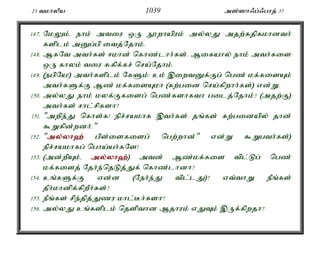 23 வமாலிய 1039 அஸ்ஸாஃப்ஃபாத் 37
147. மேலும், நாம் அவரை ஒரு நூறாயிரம் அல்லது அதற்கதிகமானவர்
களிடம் அனுப்பி வைத்தோம்.
148. ஆகவே அவர்கள் ஈமான் கொண்டார்கள். ஆகையால் நாம் அவர்களை
ஒரு காலம் வரை சுகிக்கச் செய்தோம்.
149. (நபியே!) அவர்களிடம் கேளும்: உம் இறைவனுக்குப் பெண் மக்களையும்
அவர்களுக்கு ஆண் மக்களையுமா (கற்பனை செய்கிறார்கள்) என்று.
150. அல்லது நாம் மலக்குகளைப் பெண்களாகவா படைத்தோம்? (அதற்கு)
அவர்கள் சாட்சிகளா?
151. "அறிந்து கொள்க! நிச்சயமாக இவர்கள் தங்கள் கற்பனையில் தான்
கூறுகின்றனர்."
152. "அல்லாஹ் பிள்ளைகளைப் பெற்றான்" என்று கூறுபவர்கள்)
நிச்சயமாகப் பொய்யர்களே!
153. (அன்றியும், அல்லாஹ்) அவன் ஆண்மக்களை விட்டுப் பெண்
மக்களைத் தேர்ந்தெடுத்துக் கொண்டானா?
154. உங்களுக்கு என்ன (நேர்ந்து விட்டது)? எவ்வாறு நீங்கள்
தீர்மானிக்கிறீர்கள்?
155. நீங்கள் சிந்தித்துணர மாட்டீர்களா?
156. அல்லது உங்களிடம் தெளிவான ஆதாரம் எதுவும் இருக்கிறதா?